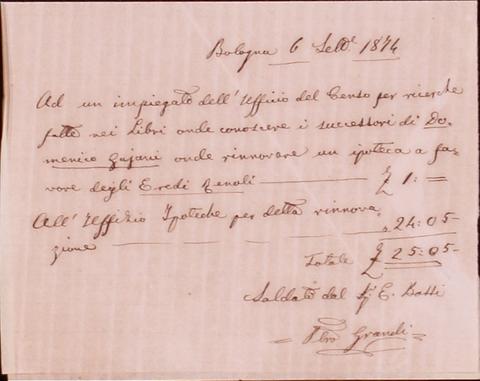 Bologna 6 Sett.e 1874
Ad un impiegato dell'Uffizio del Censo per ricerche
fatte nei Libri onde conoscere i successori di Do-
menico Gajani onde rinnovare un ipoteca a fa-
vore degli Eredi Zenoli — £ 1: =
All'Uffizio Ipoteche per detta rinnova-
zione — — — — „ 24:05-
Totale £ 25:05-
Saldato dal E. Batti
Grandi